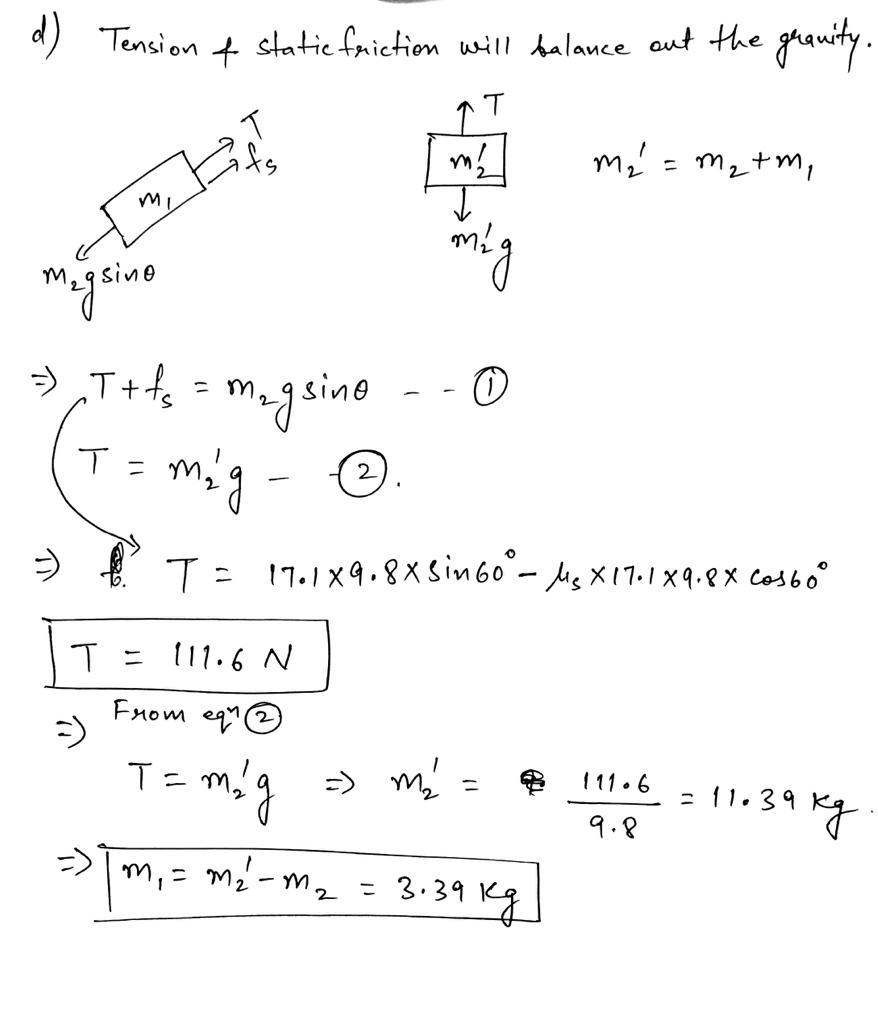 d) Tension & static friction will balance out the gravity.
T
fs
m₁
m₂g sinθ
T
m₂'
m₂'g
m₂' = m₂ + m₁
=> T + fs = m₂g sinθ - - ①
T = m₂'g - ②.
=> T = 17.1 x 9.8 x sin60° - μs x 17.1 x 9.8 x cos60°
T = 111.6 N
=> From eqⁿ ②
T = m₂'g => m₂' = 111.6 / 9.8 = 11.39 kg.
=> m₁ = m₂' - m₂ = 3.39 kg